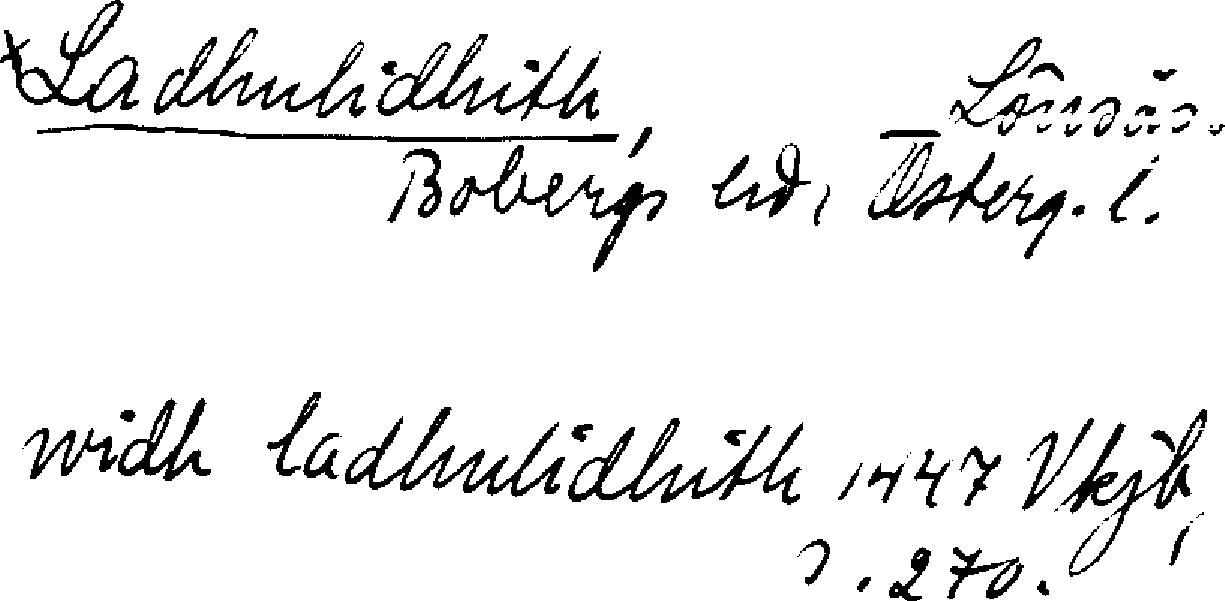 *Ladhulidhith, Lönsås.
Bobergs hd, Österg. l.
widh ladhulidhith 1447 Vkjb,
s. 270.